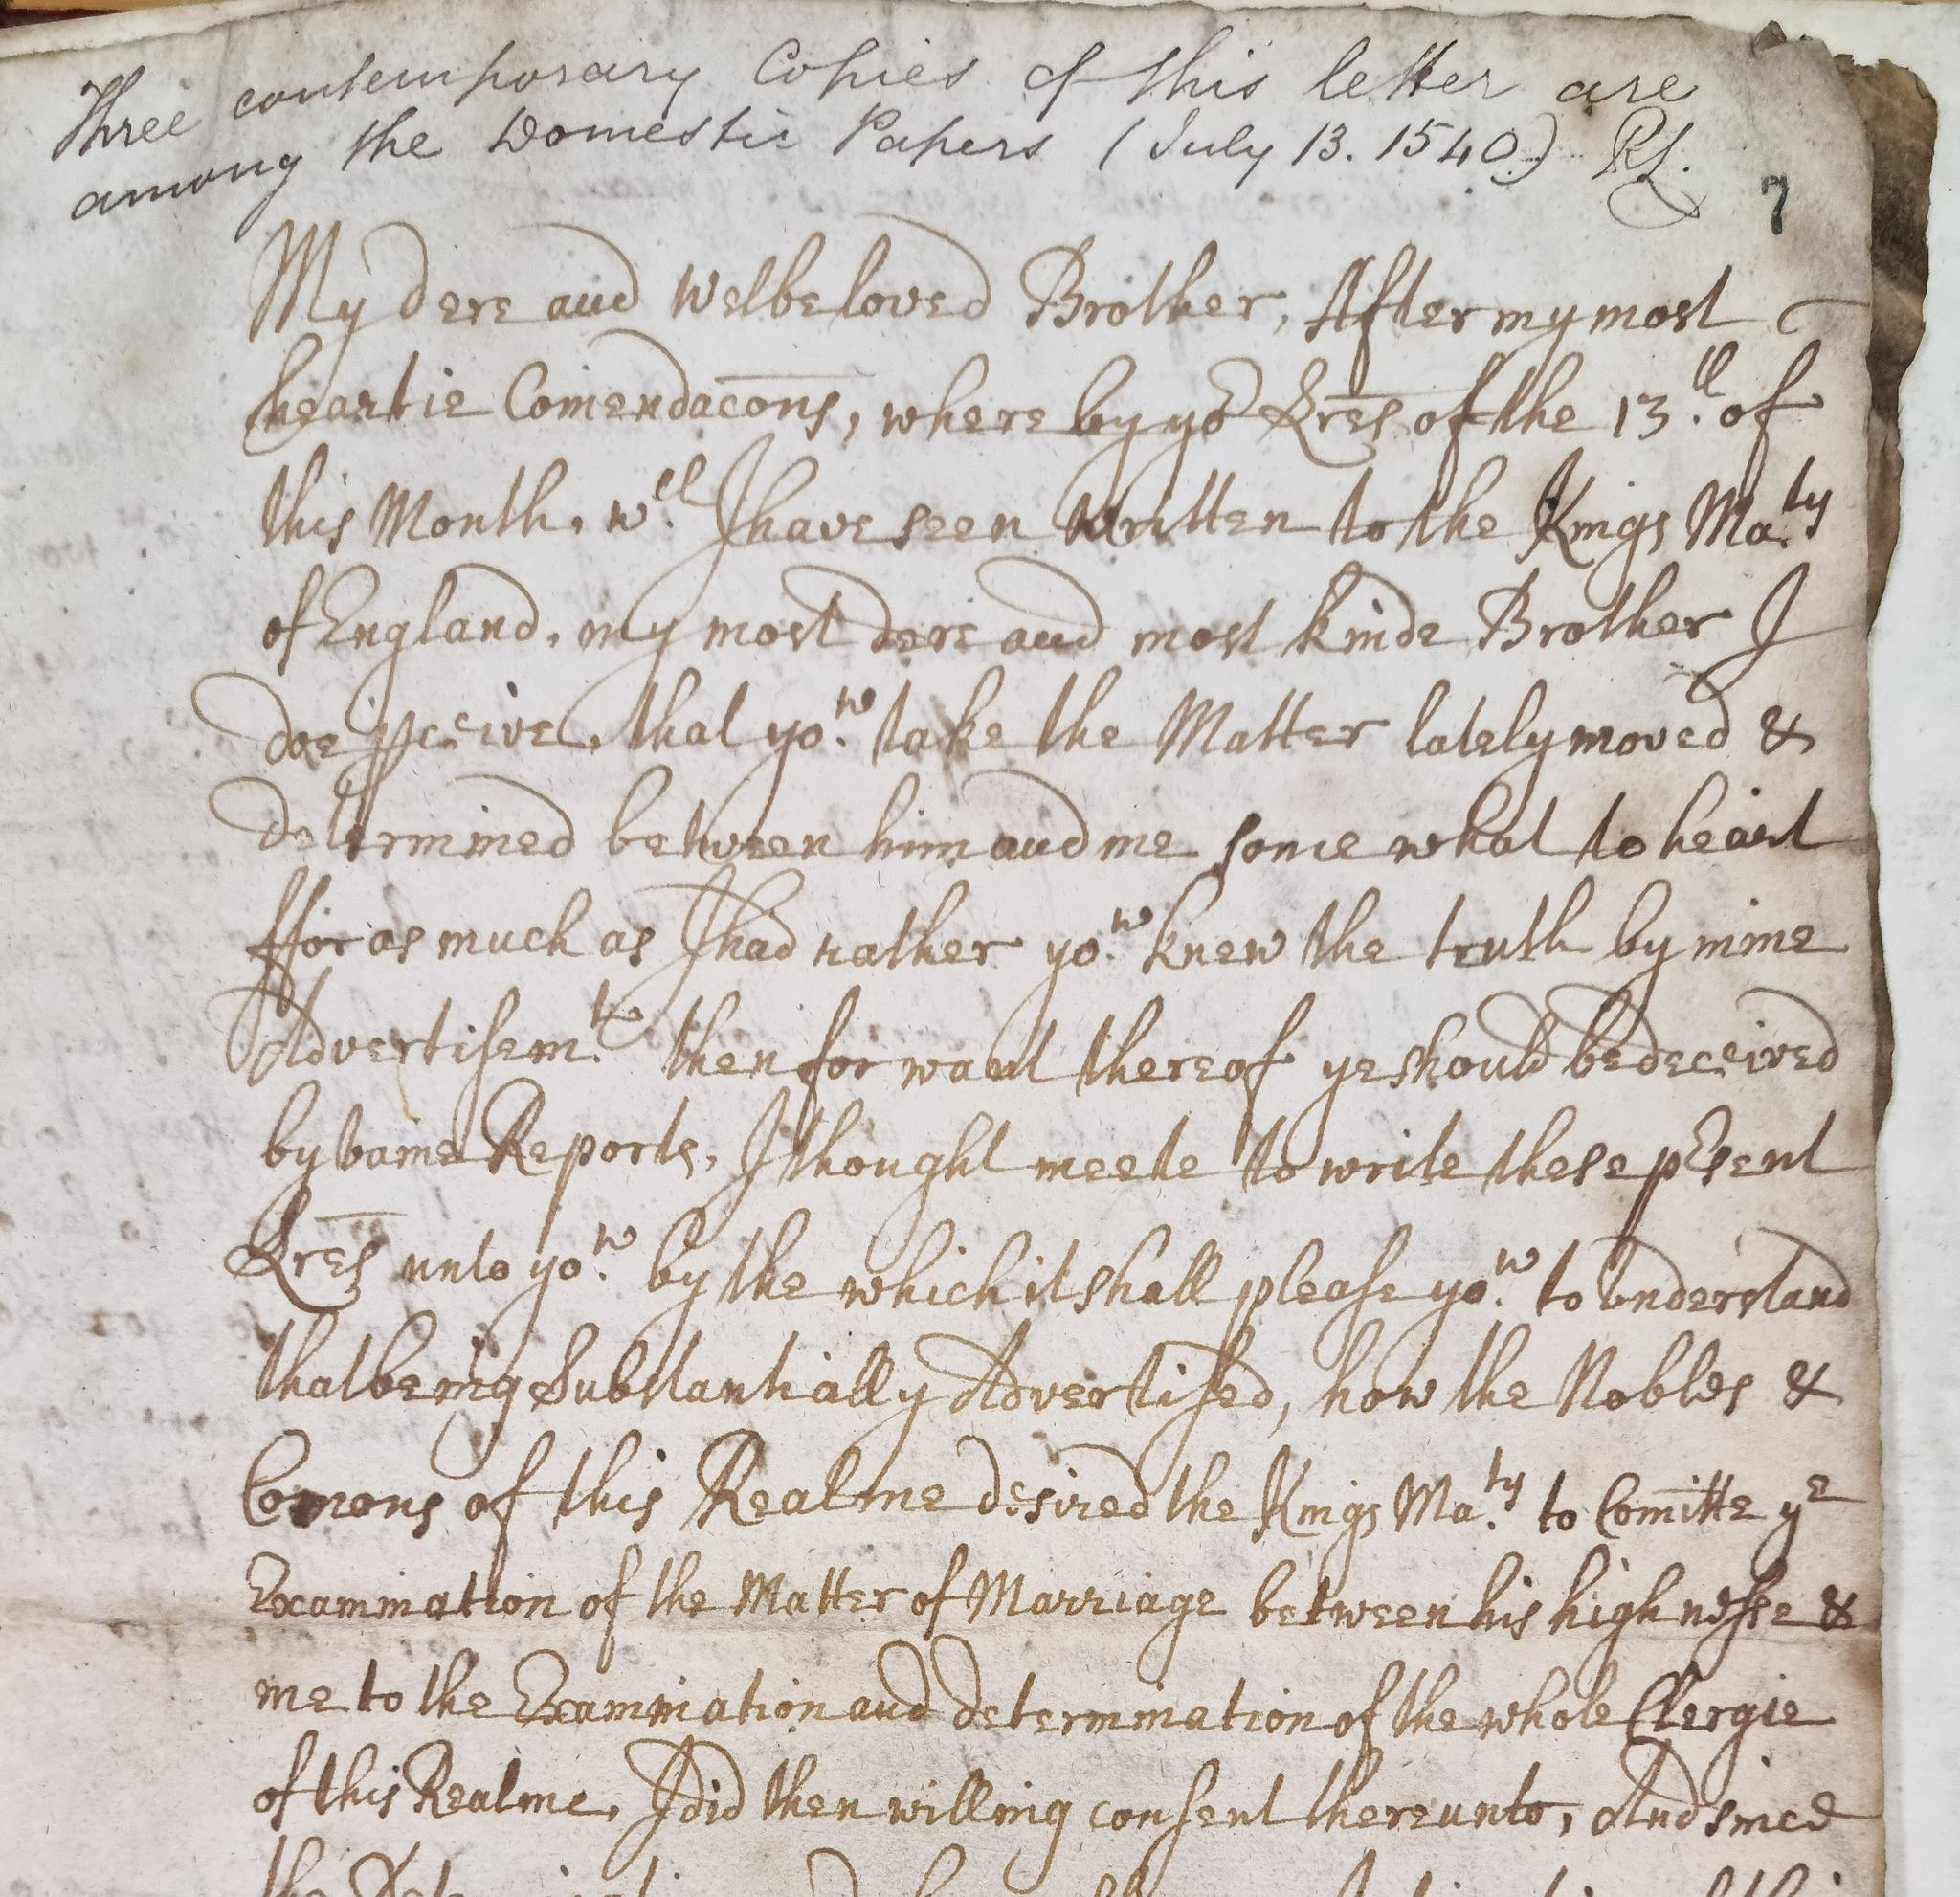 Three contemporary Copies of this letter are
among the Domestic Papers (July 13. 1540) RL.
7
My dere and welbeloved Brother, After my most
heartie Comendacons, where by yor Lres of the 13.th of
this Month, wch. I have seen written to the Kings Ma.ty
of England, my most dere and most kinde Brother I
doe pceive, that yo.w take the Matter lately moved &
determined between him and me some what to heart
ffor as much as I had rather yo.w knew the truth by mine
Advertisem.te then for want thereof ye should be deceived
by vaine Reports, I thought meete to write these pesent
Lres unto yo.w by the which it shall please yo.w to vnderstand
that being Substantially Advertised, how the Nobles &
Comons of this Realme desired the Kings Ma.ty to Comitte ye
Examination of the Matter of Marriage between his highnesse &
me to the Examination and determination of the whole Clergie
of this Realme, I did then willing consent thereunto, And since